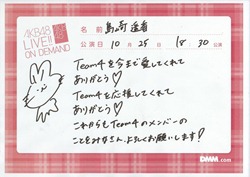 AKB48
LIVE!!
ON DEMAND
名前 島崎遥香
公演日 10月25日 18:30公演
Team4を今まで愛してくれて
ありがとう♡
Team4を応援してくれて
ありがとう♡
これからもTeam4のメンバーの
ことをみなさん、よろしくお願いします!
DMM.com